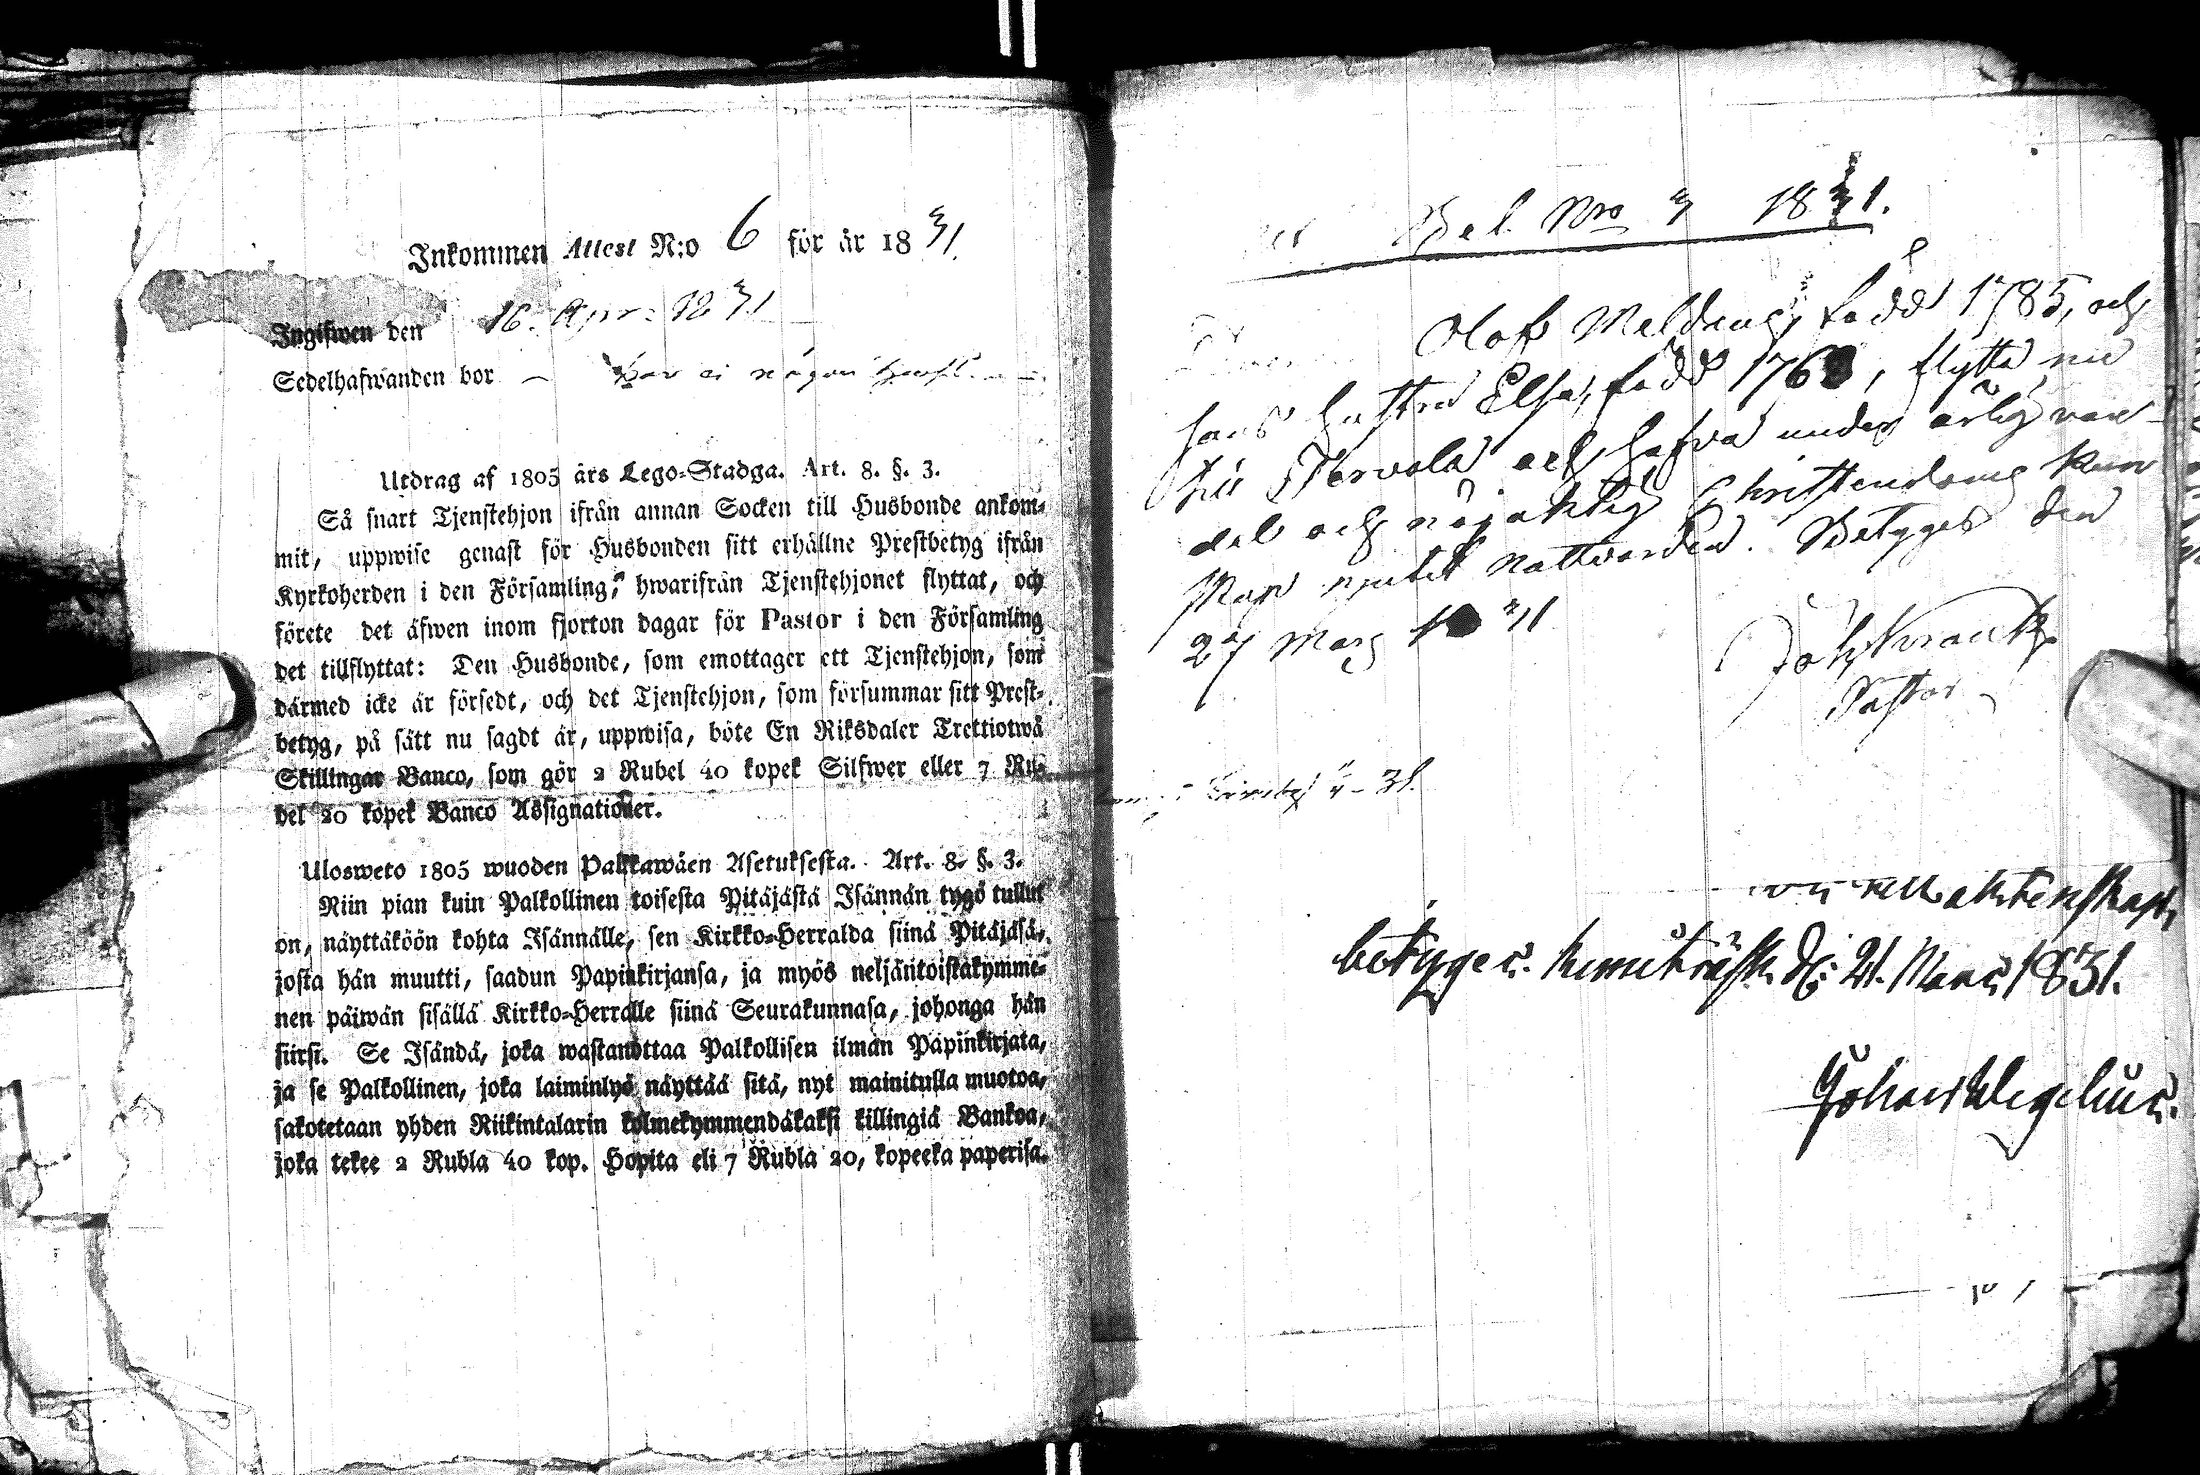 Inkommen Attest N:o 6 för år 1831.
Ingifwen den 16. Apr: 1831
Sedelhafwanden bor – har ei någon
Utdrag af 1805 års Lego-Stadga. Art. 8. §. 3.
Så snart Tjenstehjon ifrån annan Socken till Husbonde ankom-
mit, uppwise genast för Husbonden sitt erhållne Prestbetyg ifrån
Kyrkoherden i den Församling, hwarifrån Tjenstehjonet flyttat, och
förete det äfwen inom fjorton dagar för Pastor i den Församling
det tillflyttat: Den Husbonde, som emottager ett Tjenstehjon, som
därmed icke är försedt, och det Tjenstehjon, som försummar sitt Prest-
betyg, på sätt nu sagdt är, uppwisa, böte En Riksdaler Trettiotwå
Skillingar Banco, som gör 2 Rubel 40 kopek Silfwer eller 7 Ru-
bel 20 kopek Banco Assignationer.
Ulosweto 1805 wuoden Palkkawäen Asetuksesta. Art. 8. §. 3.
Niin pian kuin Palkollinen toisesta Pitäjästä Isännän tygö tullut
on, näyttäköön kohta Isännälle, sen Kirkko-Herralda siinä Pitäjäsä,
josta hän muutti, saadun Papinkirjansa, ja myös neljäntoistakymme-
nen päiwän sisällä Kirkko-Herralle siinä Seurakunnasa, johonga hän
siirsi. Se Isändä, joka wastanottaa Palkollisen ilman Papinkirjata,
ja se Palkollinen, joka laiminlyö näyttää sitä, nyt mainitulla muotoa,
sakotetaan yhden Riikintalarin kolmekymmendäkaksi killingiä Bankoa,
joka tekee 2 Rubla 40 kop. Hopita eli 7 Rubla 20, kopeeka paperisa.
Bel. Nro 3 1831.
Olof Meldeus, född 1785, och
hans hustru Elsa, född 176, flytta nu
till Tervola och hafva under ärlig van-
del och nöjaktig Christendoms kun
skap njutit nattvarden. Betygas den
27 Mars 1831
Joh Kranck
Pastor
31.
till äktenskap,
betygas. Kemiträsk d: 21. Mars 1831.
Johan Wegelius.